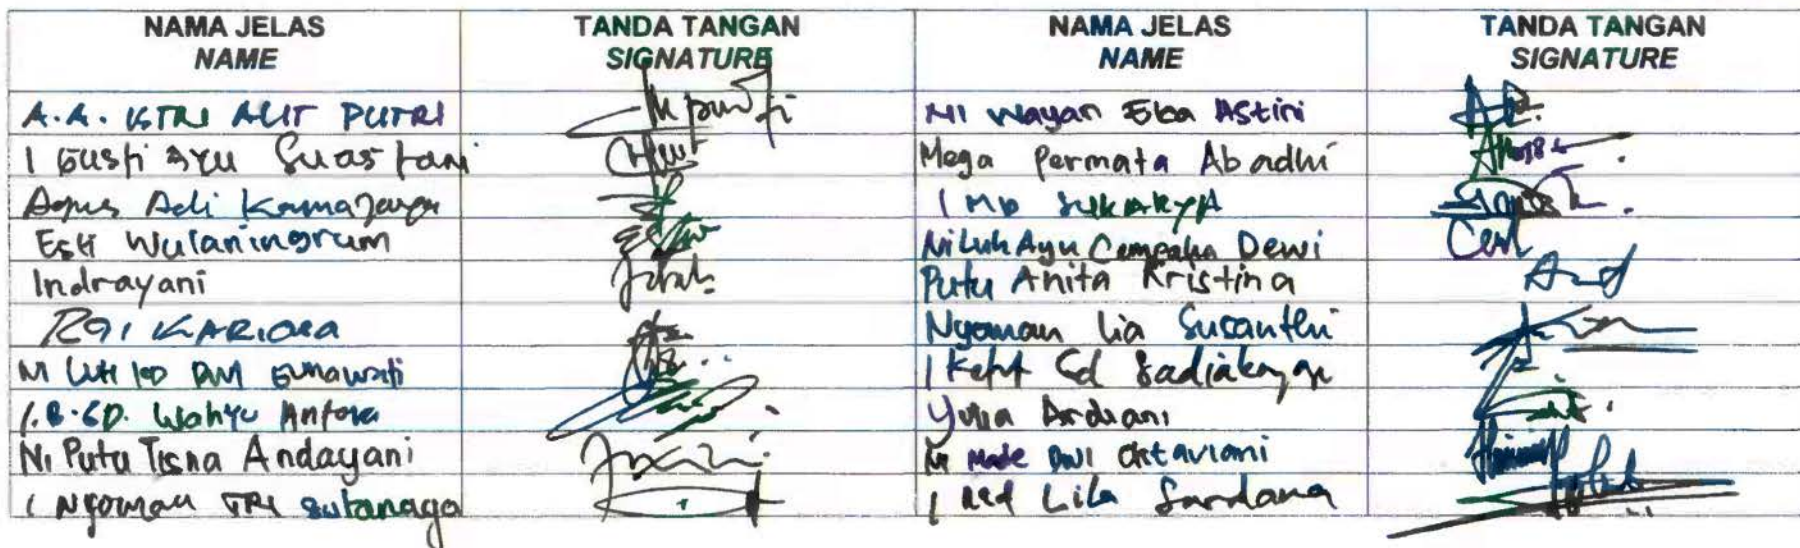 NAMA JELAS TANDA TANGAN NAMA JELAS TANDA TANGAN
NAME SIGNATURE NAME SIGNATURE
A.A. ISTRI ALIT PUTRI Ni Wayan Eka Astini
I Gusti Ayu Suastani Mega Permata Abadhi
Agus Adi I MD SUKARYA
Esti Wulaningrum Ni Luh Ayu Cempaka Dewi
Indrayani Putu Anita Kristina
KARIANA Nyoman Lia Susanthi
Ni LUH Gunawati I Ketut Gd
I.B.GD. Wahyu Antara Yulia Ardiani
Ni Putu Tisna Andayani Ni Made DWI Oktaviani
I Nyoman TRI Sutanaga I Ked Lila Sardana